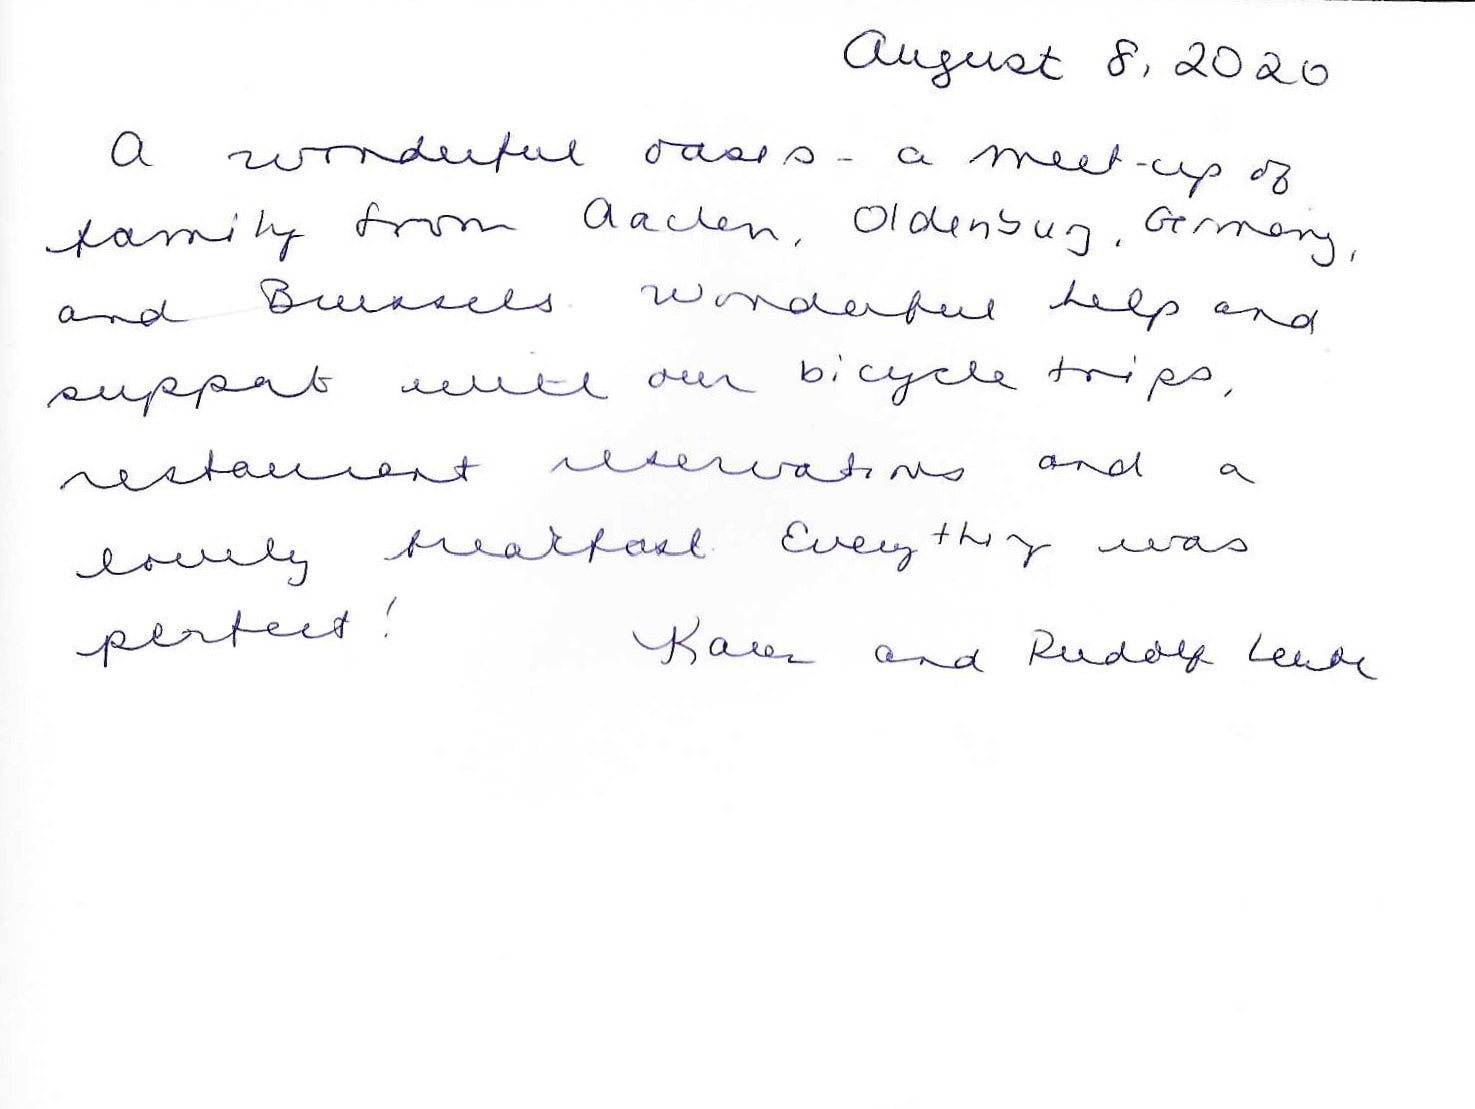 August 8, 2020
A wonderful oasis - a meet-up of
family from Aachen, Oldenburg, Germany,
and Brussels. Wonderful help and
support with our bicycle trips,
restaurant reservations and a
lovely breakfast. Everything was
perfect!
Karen and Rudolf